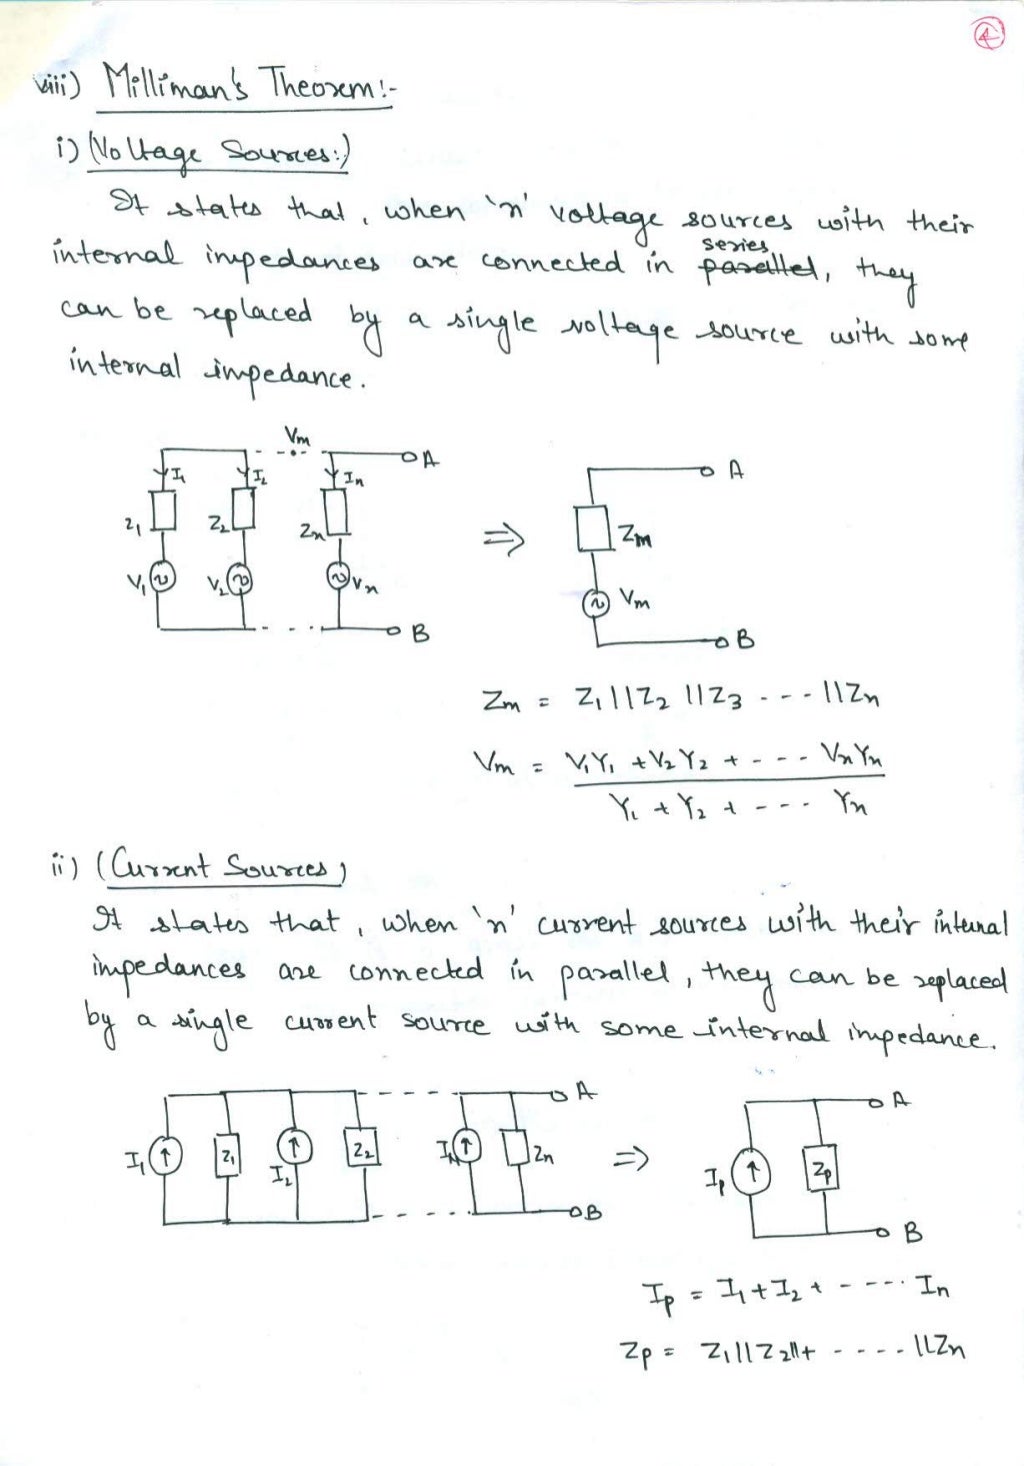 4
viii) Milliman's Theorem:-
i) (Voltage Sources:)
It states that, when 'n' voltage sources with their
series
internal impedances are connected in parallel, they
can be replaced by a single voltage source with some
internal impedance.
Vm
A
I1 I2 In
Z1 Z2 Zn
V1 V2 Vn
B
⇒
A
Zm
Vm
B
Zm = Z1 || Z2 || Z3 - - - - || Zn
Vm = V1Y1 + V2Y2 + - - - - VnYn
Y1 + Y2 + - - - - Yn
ii) (Current Sources)
It states that, when 'n' current sources with their internal
impedances are connected in parallel, they can be replaced
by a single current source with some internal impedance.
A
I1 Z1 I2 Z2 In Zn
B
⇒
A
Ip Zp
B
Ip = I1 + I2 + - - - - - In
Zp = Z1 || Z2 || + - - - - || Zn